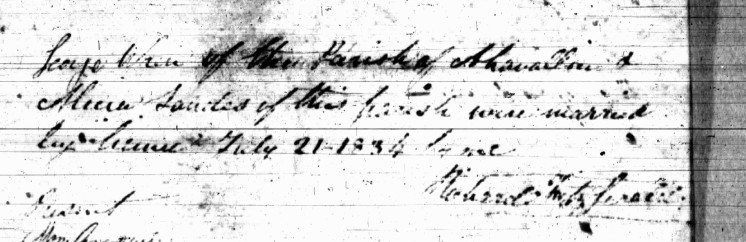 George Wren of the Parish of Ahavallin &
Alicia Sandes of this parish were married
by license July 21-1834 by me
Richard Fitzgerald
Present